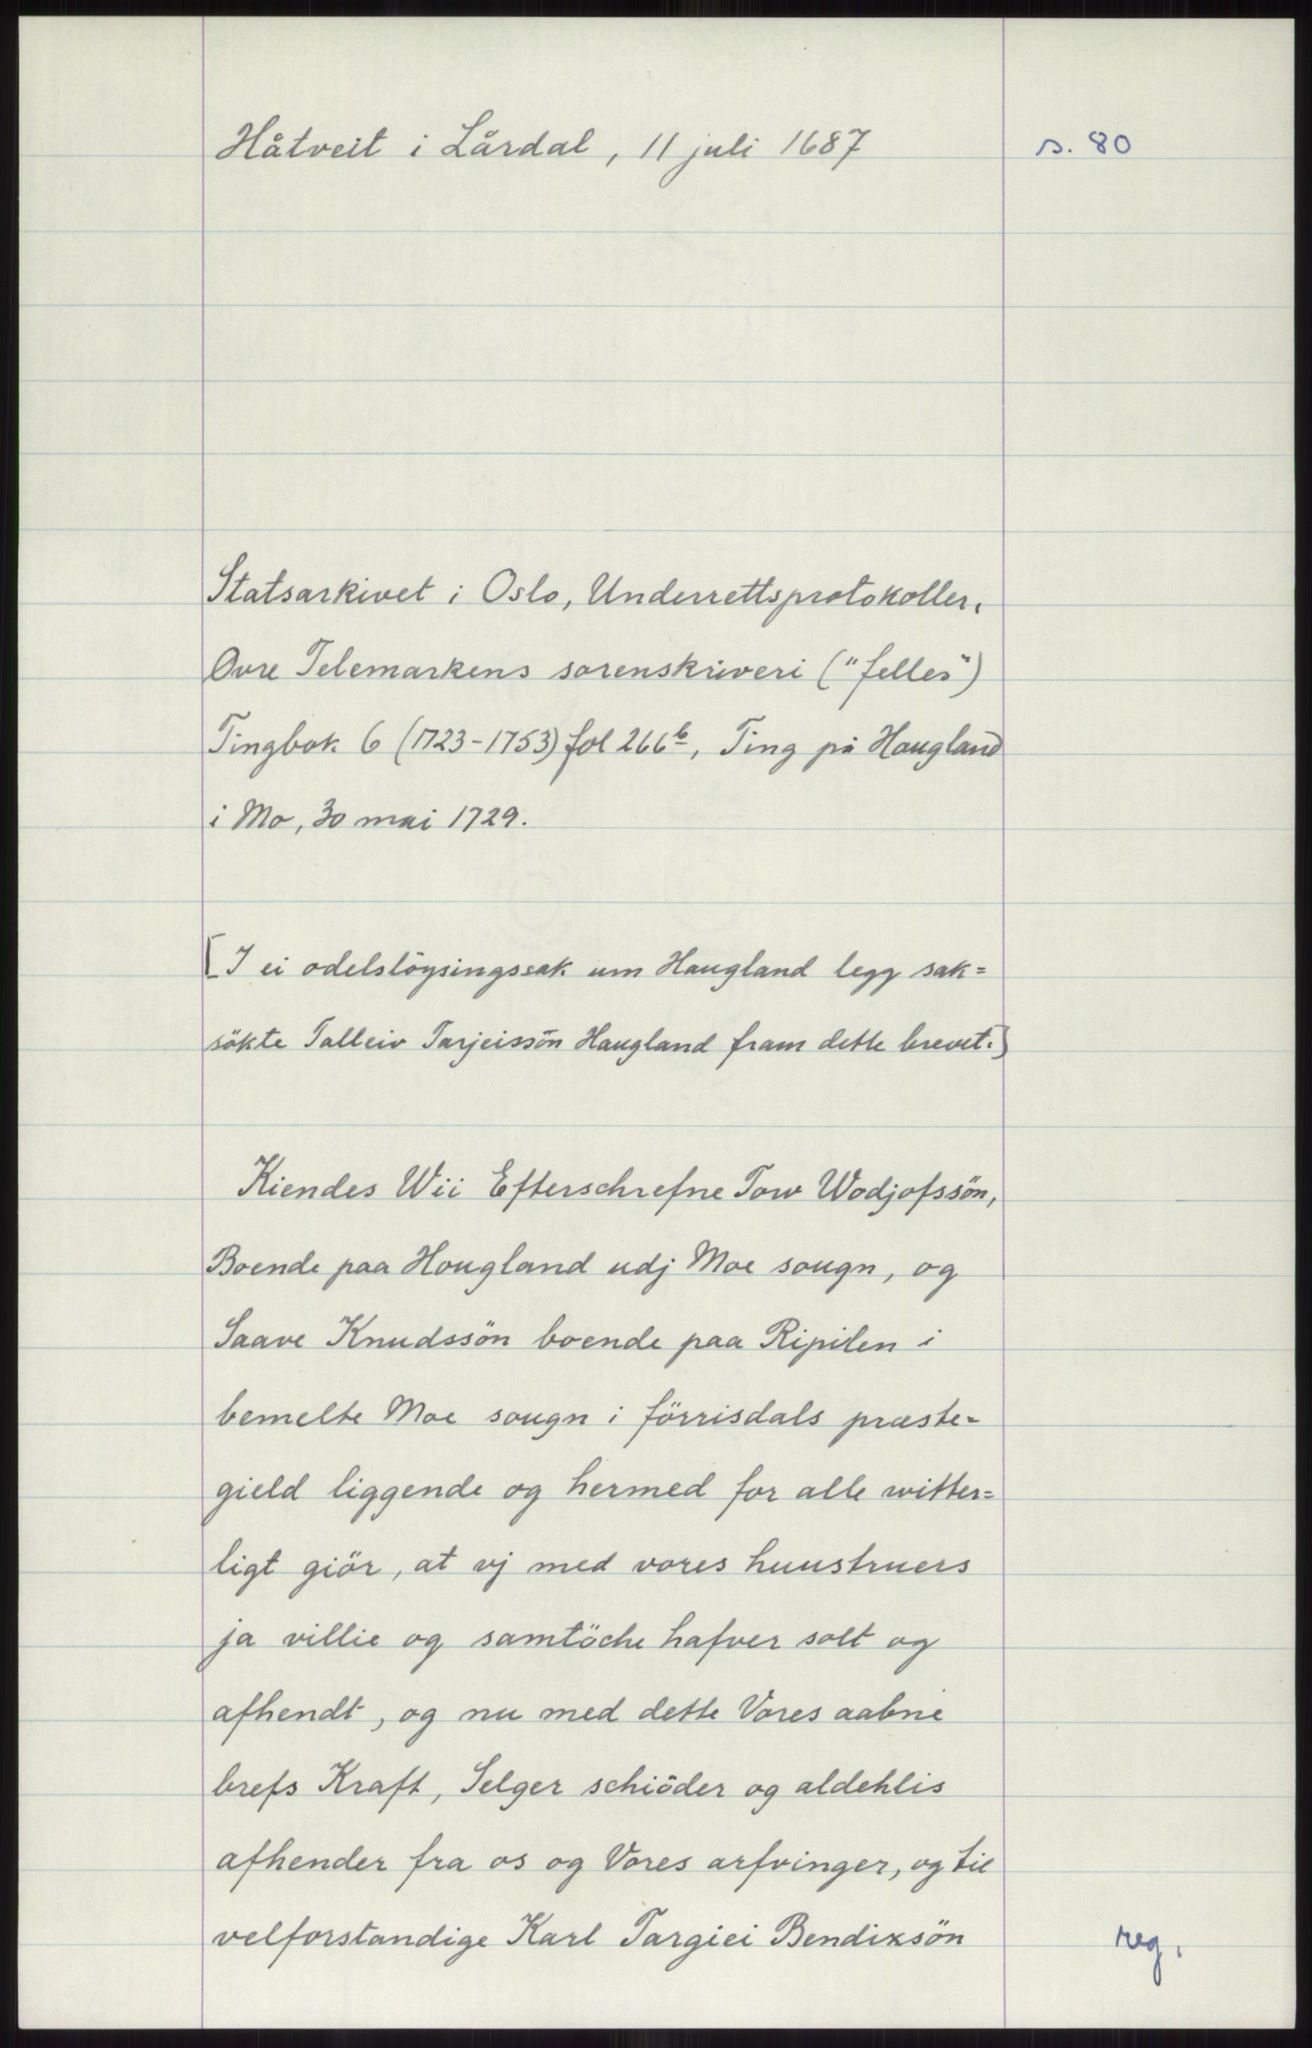 Håtveit i Lårdal, 11 juli 1687
s. 80
Statsarkivet i Oslo, Underrettsprotokoller,
Øvre Telemarkens sorenskriveri ("felles")
Tingbok 6 (1723-1753) fol 266b, Ting på Haugland
i Mo, 30 mai 1729.
[I ei odelslöysingssak um Haugland legg sak=
sökte Talleiv Tarjeissön Haugland fram dette brevet.]
Kiendes Wii Efterschrefne Tow Wodjofssön,
Boende paa Hougland udj Moe sougn, og
Saave Knudssön boende paa Ripilen i
bemelte Moe sougn i förrisdals præste=
gield liggende og hermed for alle witter=
ligt giör, at vj med vores huustruers
ja villie og samtöche hafver solt og
afhendt, og nu med dette Vores aabne
brefs Kraft, Selger schiöder og aldehlis
afhender fra os og Vores arfvinger, og til
velforstandige Karl Targiei Bendixsön
reg.